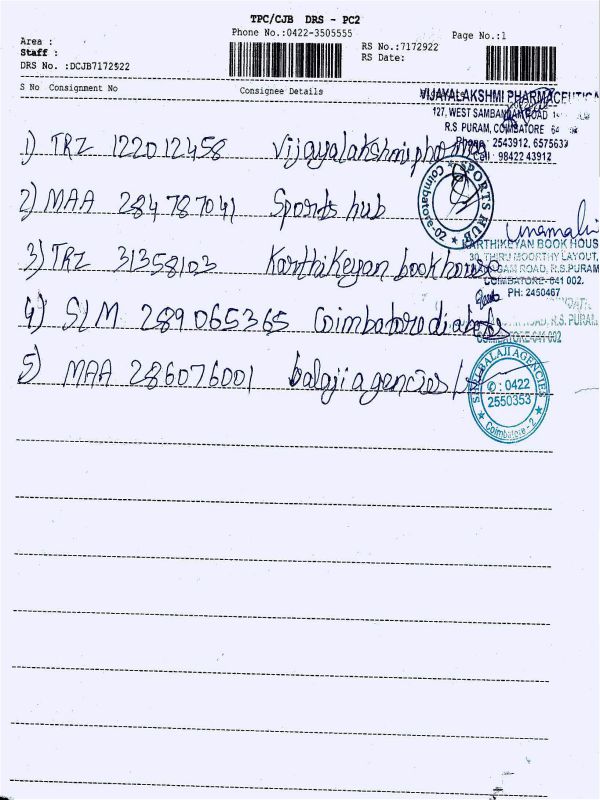 TPC/CJB DRS - PC2
Phone No.:0422-3505555
Page No.:1
Area :
Staff :
DRS No. :DCJB7172922
RS No.:7172922
RS Date:
S No Consignment No Consignee Details
VIJAYALAKSHMI PHARMACEUTICA
127, WEST SAMBANDAM ROAD
R.S. PURAM, COIMBATORE
Phone : 2543912, 6575637
Cell : 98422 43912
1) TRZ 122012458 Vijayalakshmi pharma
SPORTS HUB
Coimbatore-02
2) MAA 284787041 Sports hub
KARTHIKEYAN BOOK HOUS
30, THIRU MOORTHY LAYOUT,
GAM ROAD, R.S.PURAM
COIMBATORE-641 002.
PH: 2450467
3) TRZ 31358103 Karthikeyan book house
ROAD, R.S. PURAM,
COIMBATORE-641 002
4) SLM 289065365 Coimbatore diabetes
5) MAA 286076001 balaji agencies
SRI BALAJI AGENCIES
✆ : 0422
2550353
Coimbatore - 2